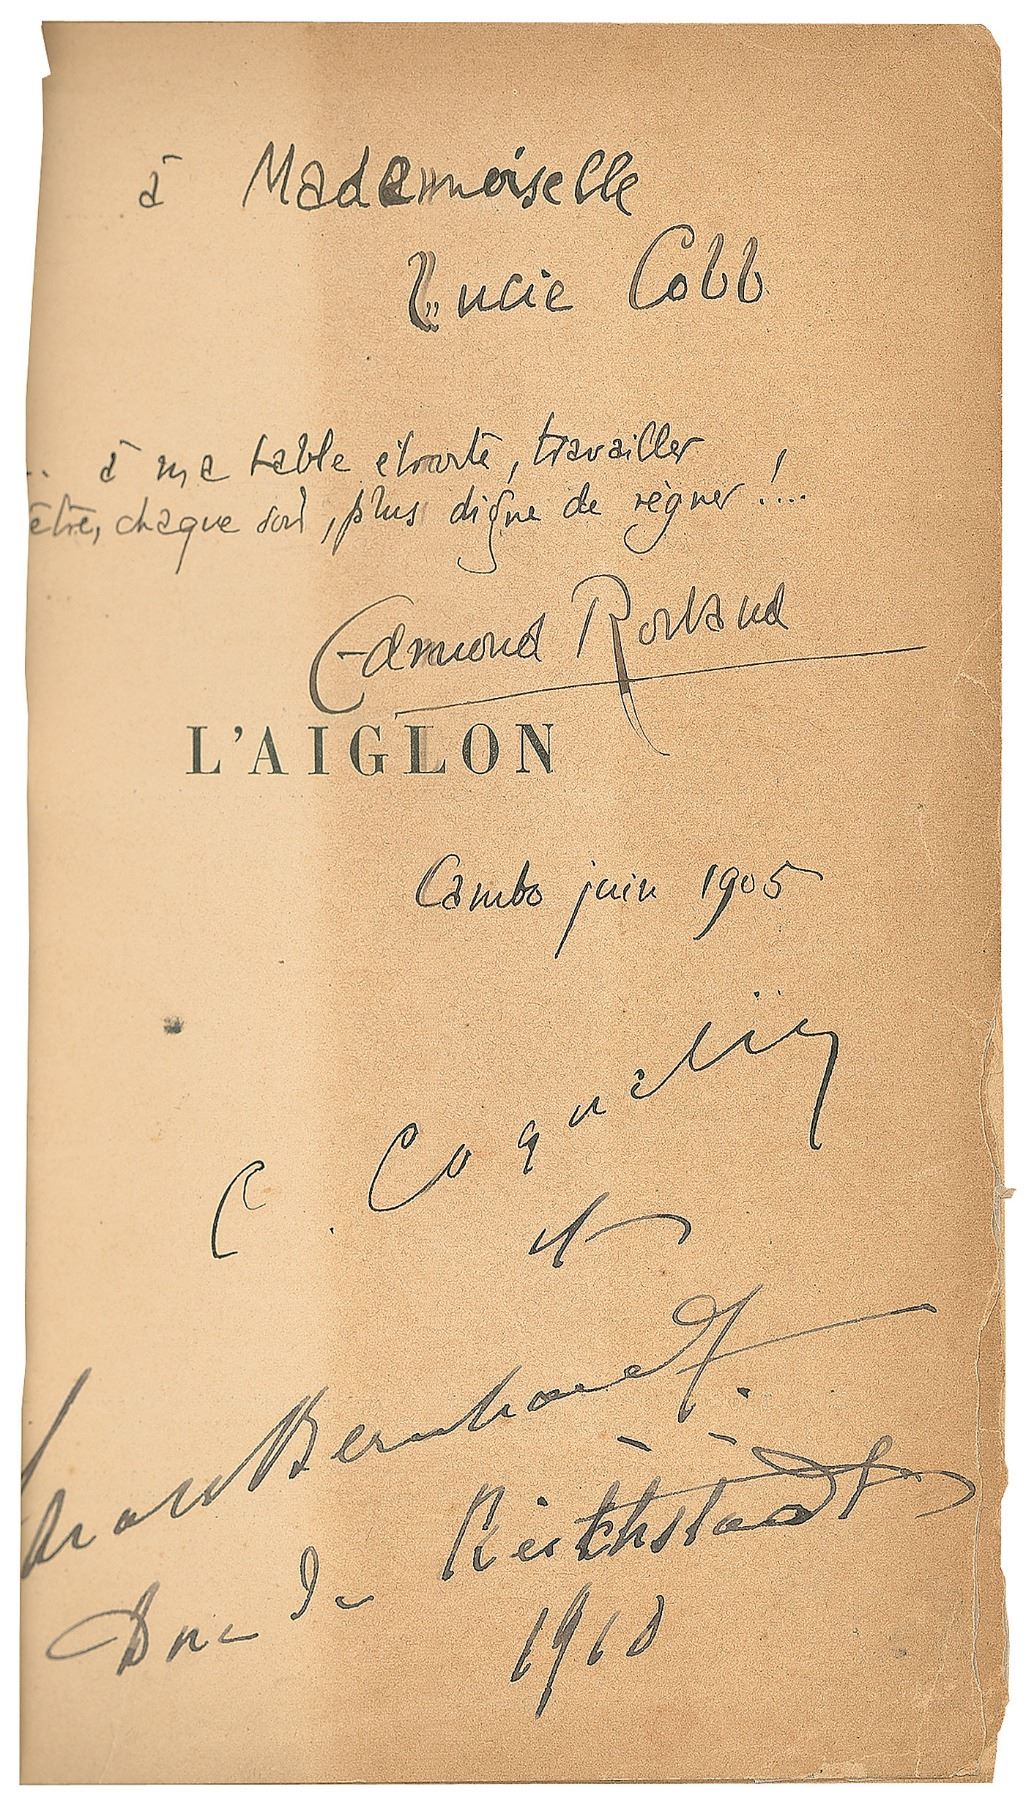 à Mademoiselle
Lucie Cobb
.. à ma table étroite, travailler !
être, chaque soir, plus digne de régner !....
Edmond Rostand
L'AIGLON
Cambo juin 1905
C. Coquelin
et
Sarah Bernhardt.
Duc de Reichstadt
1910